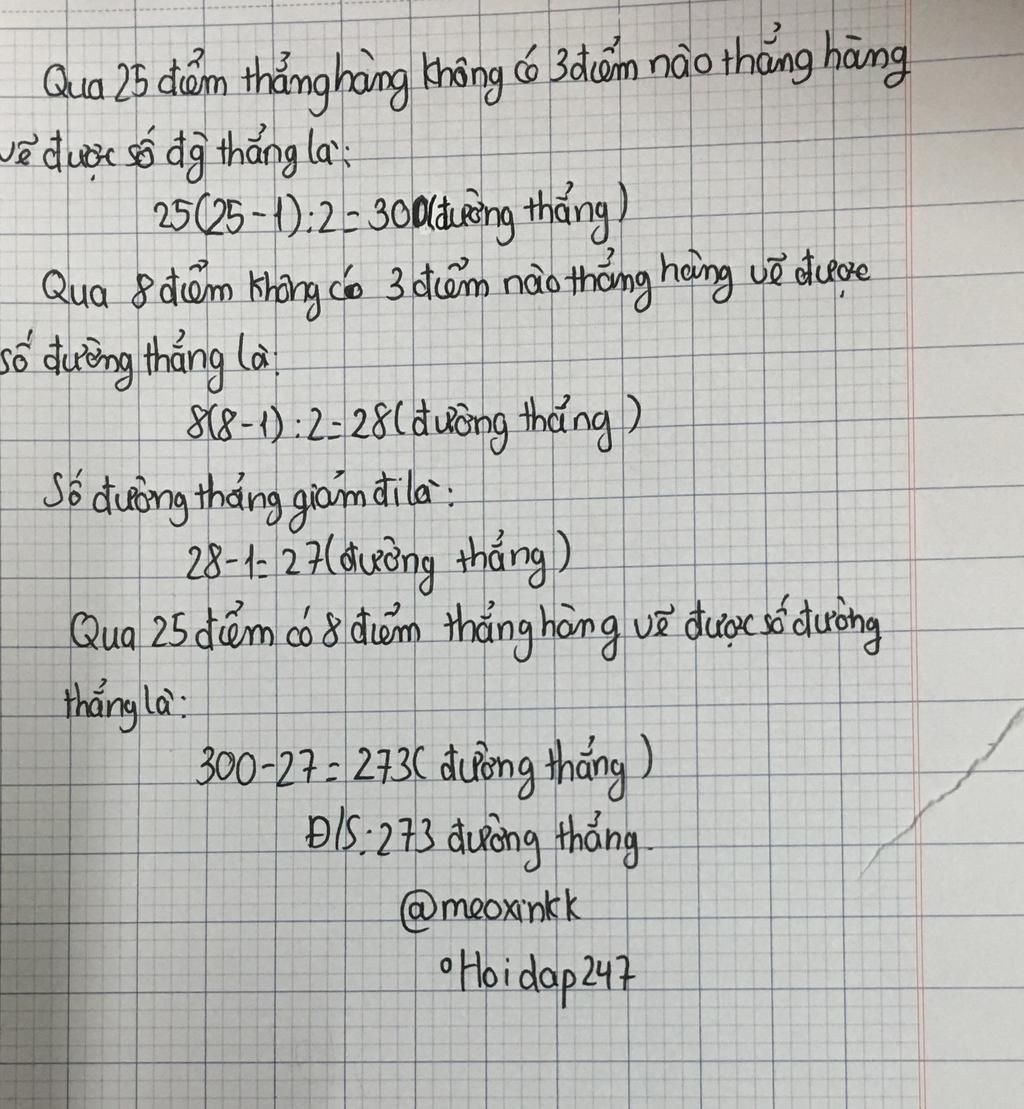 Qua 25 điểm thẳng hàng không có 3 điểm nào thẳng hàng
vẽ được số đg̀ thẳng là:
25(25-1):2=300(đường thẳng)
Qua 8 điểm không có 3 điểm nào thẳng hàng vẽ được
số đường thẳng là:
8(8-1):2=28(đường thẳng)
Số đường thẳng giảm đi là:
28-1=27(đường thẳng)
Qua 25 điểm có 8 điểm thẳng hàng vẽ được số đường
thẳng là:
300-27=273(đường thẳng)
Đ/S:273 đường thẳng.
@meoxinkk
°Hoidap247